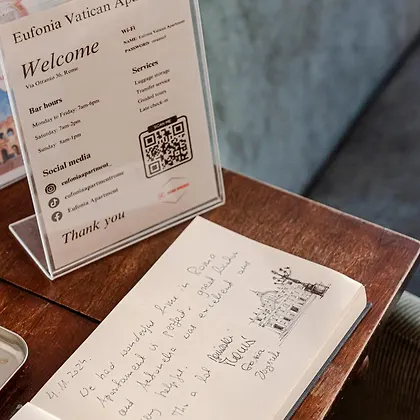 Eufonia Vatican
Welcome
Via Otranto 36, Rome
Wi-Fi
NAME: Eufonia Vatican Apartment
PASSWORD:
Bar hours
Monday to Friday: 7am-6pm
Saturday: 7am-2pm
Sunday: 8am-1pm
Services
Luggage storage
Transfer service
Guided tours
Late check-in
Social media
eufoniaapartment_
eufoniaapartmentrome
Eufonia Apartment
Thank you
4.11.2024.
We had wonderful time in Rome
Apartment is perfect, great location
and Antonela was excellent and
very helpful.
Thx a lot